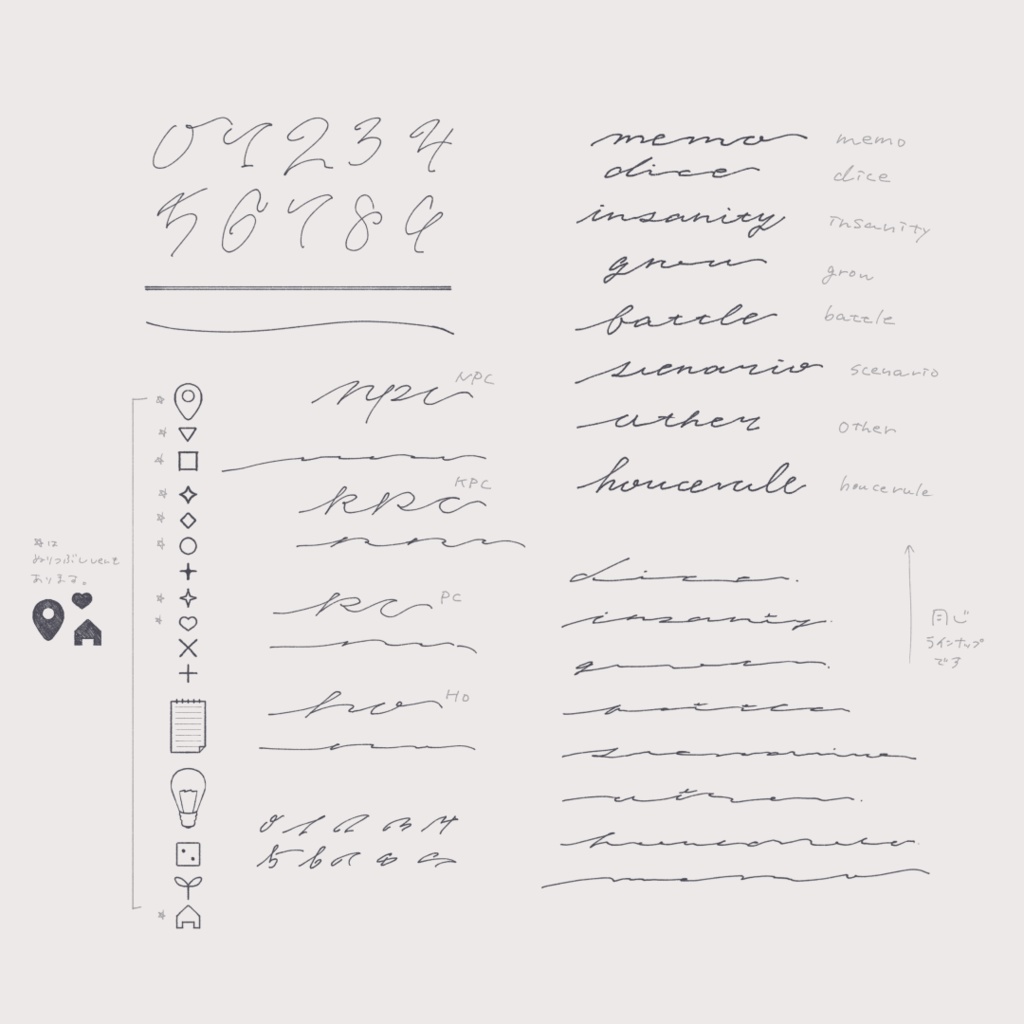 0 1 2 3 4
5 6 7 8 9
npc NPC
kpc KPC
pc PC
ho HO
0 1 2 3 4
5 6 7 8 9
☆は
ぬりつぶしverも
あります。
memo memo
dice dice
insanity insanity
grow grow
battle battle
scenario scenario
other other
houcerule houcerule
dice
insanity
grow
battle
scenario
other
houcerule
memo
同じ
ラインナップ
です